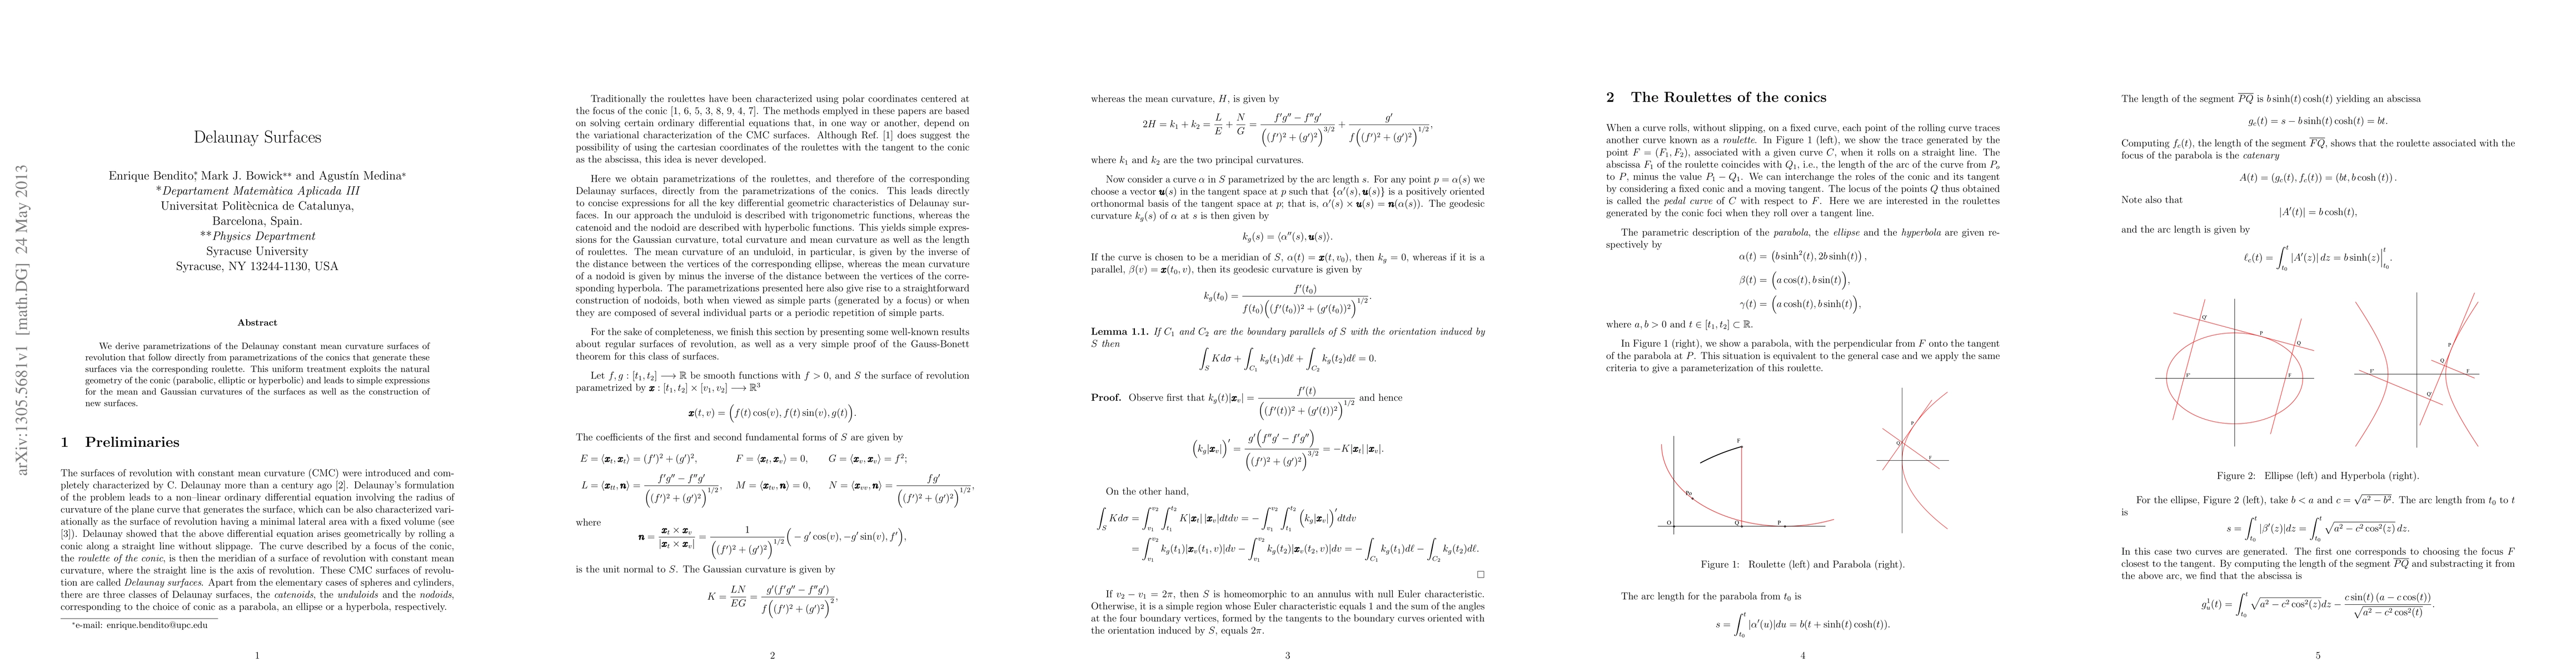 arXiv:1305.5681v1 [math.DG] 24 May 2013
Delaunay Surfaces
Enrique Bendito*, Mark J. Bowick** and Agustín Medina*
*Departament Matemàtica Aplicada III
Universitat Politècnica de Catalunya,
Barcelona, Spain.
**Physics Department
Syracuse University
Syracuse, NY 13244-1130, USA
Abstract
We derive parametrizations of the Delaunay constant mean curvature surfaces of
revolution that follow directly from parametrizations of the conics that generate these
surfaces via the corresponding roulette. This uniform treatment exploits the natural
geometry of the conic (parabolic, elliptic or hyperbolic) and leads to simple expressions
for the mean and Gaussian curvatures of the surfaces as well as the construction of
new surfaces.
1 Preliminaries
The surfaces of revolution with constant mean curvature (CMC) were introduced and com-
pletely characterized by C. Delaunay more than a century ago [2]. Delaunay's formulation
of the problem leads to a non–linear ordinary differential equation involving the radius of
curvature of the plane curve that generates the surface, which can be also characterized vari-
ationally as the surface of revolution having a minimal lateral area with a fixed volume (see
[3]). Delaunay showed that the above differential equation arises geometrically by rolling a
conic along a straight line without slippage. The curve described by a focus of the conic,
the roulette of the conic, is then the meridian of a surface of revolution with constant mean
curvature, where the straight line is the axis of revolution. These CMC surfaces of revolu-
tion are called Delaunay surfaces. Apart from the elementary cases of spheres and cylinders,
there are three classes of Delaunay surfaces, the catenoids, the unduloids and the nodoids,
corresponding to the choice of conic as a parabola, an ellipse or a hyperbola, respectively.
*e-mail: enrique.bendito@upc.edu
1
Traditionally the roulettes have been characterized using polar coordinates centered at
the focus of the conic [1, 6, 5, 3, 8, 9, 4, 7]. The methods emplyed in these papers are based
on solving certain ordinary differential equations that, in one way or another, depend on
the variational characterization of the CMC surfaces. Although Ref. [1] does suggest the
possibility of using the cartesian coordinates of the roulettes with the tangent to the conic
as the abscissa, this idea is never developed.
Here we obtain parametrizations of the roulettes, and therefore of the corresponding
Delaunay surfaces, directly from the parametrizations of the conics. This leads directly
to concise expressions for all the key differential geometric characteristics of Delaunay sur-
faces. In our approach the unduloid is described with trigonometric functions, whereas the
catenoid and the nodoid are described with hyperbolic functions. This yields simple expres-
sions for the Gaussian curvature, total curvature and mean curvature as well as the length
of roulettes. The mean curvature of an unduloid, in particular, is given by the inverse of
the distance between the vertices of the corresponding ellipse, whereas the mean curvature
of a nodoid is given by minus the inverse of the distance between the vertices of the corre-
sponding hyperbola. The parametrizations presented here also give rise to a straightforward
construction of nodoids, both when viewed as simple parts (generated by a focus) or when
they are composed of several individual parts or a periodic repetition of simple parts.
For the sake of completeness, we finish this section by presenting some well-known results
about regular surfaces of revolution, as well as a very simple proof of the Gauss-Bonett
theorem for this class of surfaces.
Let f, g : [t₁, t₂] ⟶ ℝ be smooth functions with f > 0, and S the surface of revolution
parametrized by x : [t₁, t₂] × [v₁, v₂] ⟶ ℝ³
x(t, v) = (f(t) cos(v), f(t) sin(v), g(t)).
The coefficients of the first and second fundamental forms of S are given by
E = ⟨xₜ, xₜ⟩ = (f′)² + (g′)², F = ⟨xₜ, xᵥ⟩ = 0, G = ⟨xᵥ, xᵥ⟩ = f²;
L = ⟨xₜₜ, n⟩ = (f′g″ − f″g′)/((f′)² + (g′)²)^{1/2}, M = ⟨xₜᵥ, n⟩ = 0, N = ⟨xᵥᵥ, n⟩ = fg′/((f′)² + (g′)²)^{1/2},
where
n = (xₜ × xᵥ)/|xₜ × xᵥ| = 1/((f′)² + (g′)²)^{1/2} (− g′ cos(v), −g′ sin(v), f′),
is the unit normal to S. The Gaussian curvature is given by
K = LN/EG = g′(f′g″ − f″g′)/(f((f′)² + (g′)²)²),
2
whereas the mean curvature, H, is given by
2H = k₁ + k₂ = L/E + N/G = (f′g″ − f″g′)/((f′)² + (g′)²)^{3/2} + g′/(f((f′)² + (g′)²)^{1/2}),
where k₁ and k₂ are the two principal curvatures.
Now consider a curve α in S parametrized by the arc length s. For any point p = α(s) we
choose a vector u(s) in the tangent space at p such that {α′(s), u(s)} is a positively oriented
orthonormal basis of the tangent space at p; that is, α′(s) × u(s) = n(α(s)). The geodesic
curvature k_g(s) of α at s is then given by
k_g(s) = ⟨α″(s), u(s)⟩.
If the curve is chosen to be a meridian of S, α(t) = x(t, v₀), then k_g = 0, whereas if it is a
parallel, β(v) = x(t₀, v), then its geodesic curvature is given by
k_g(t₀) = f′(t₀)/(f(t₀)((f′(t₀))² + (g′(t₀))²)^{1/2}).
Lemma 1.1. If C₁ and C₂ are the boundary parallels of S with the orientation induced by
S then
∫_S Kdσ + ∫_{C₁} k_g(t₁)dℓ + ∫_{C₂} k_g(t₂)dℓ = 0.
Proof. Observe first that k_g(t)|xᵥ| = f′(t)/((f′(t))² + (g′(t))²)^{1/2} and hence
(k_g|xᵥ|)′ = g′(f″g′ − f′g″)/((f′)² + (g′)²)^{3/2} = −K|xₜ| |xᵥ|.
On the other hand,
∫_S Kdσ = ∫_{v₁}^{v₂} ∫_{t₁}^{t₂} K|xₜ| |xᵥ|dtdv = − ∫_{v₁}^{v₂} ∫_{t₁}^{t₂} (k_g|xᵥ|)′dtdv
= ∫_{v₁}^{v₂} k_g(t₁)|xᵥ(t₁, v)|dv − ∫_{v₁}^{v₂} k_g(t₂)|xᵥ(t₂, v)|dv = − ∫_{C₁} k_g(t₁)dℓ − ∫_{C₂} k_g(t₂)dℓ.
□
If v₂ − v₁ = 2π, then S is homeomorphic to an annulus with null Euler characteristic.
Otherwise, it is a simple region whose Euler characteristic equals 1 and the sum of the angles
at the four boundary vertices, formed by the tangents to the boundary curves oriented with
the orientation induced by S, equals 2π.
3
2 The Roulettes of the conics
When a curve rolls, without slipping, on a fixed curve, each point of the rolling curve traces
another curve known as a roulette. In Figure 1 (left), we show the trace generated by the
point F = (F₁, F₂), associated with a given curve C, when it rolls on a straight line. The
abscissa F₁ of the roulette coincides with Q₁, i.e., the length of the arc of the curve from Pₒ
to P, minus the value P₁ − Q₁. We can interchange the roles of the conic and its tangent
by considering a fixed conic and a moving tangent. The locus of the points Q thus obtained
is called the pedal curve of C with respect to F. Here we are interested in the roulettes
generated by the conic foci when they roll over a tangent line.
The parametric description of the parabola, the ellipse and the hyperbola are given re-
spectively by
α(t) = (b sinh²(t), 2b sinh(t)),
β(t) = (a cos(t), b sin(t)),
γ(t) = (a cosh(t), b sinh(t)),
where a, b > 0 and t ∈ [t₁, t₂] ⊂ ℝ.
In Figure 1 (right), we show a parabola, with the perpendicular from F onto the tangent
of the parabola at P. This situation is equivalent to the general case and we apply the same
criteria to give a parameterization of this roulette.
F
Po
O
Q
P
P
Q
F
Figure 1: Roulette (left) and Parabola (right).
The arc length for the parabola from t₀ is
s = ∫_{t₀}^{t} |α′(u)|du = b(t + sinh(t) cosh(t)).
4
The length of the segment PQ is b sinh(t) cosh(t) yielding an abscissa
g_c(t) = s − b sinh(t) cosh(t) = bt.
Computing f_c(t), the length of the segment FQ, shows that the roulette associated with the
focus of the parabola is the catenary
A(t) = (g_c(t), f_c(t)) = (bt, b cosh (t)).
Note also that
|A′(t)| = b cosh(t),
and the arc length is given by
ℓ_c(t) = ∫_{t₀}^{t} |A′(z)| dz = b sinh(z)|_{t₀}^{t}.
Q'
P
Q
F'
F
P
Q
F'
F
Q'
Figure 2: Ellipse (left) and Hyperbola (right).
For the ellipse, Figure 2 (left), take b < a and c = √(a² − b²). The arc length from t₀ to t
is
s = ∫_{t₀}^{t} |β′(z)|dz = ∫_{t₀}^{t} √(a² − c² cos²(z)) dz.
In this case two curves are generated. The first one corresponds to choosing the focus F
closest to the tangent. By computing the length of the segment PQ and substracting it from
the above arc, we find that the abscissa is
g_u^1(t) = ∫_{t₀}^{t} √(a² − c² cos²(z))dz − c sin(t) (a − c cos(t))/√(a² − c² cos²(t)).
5